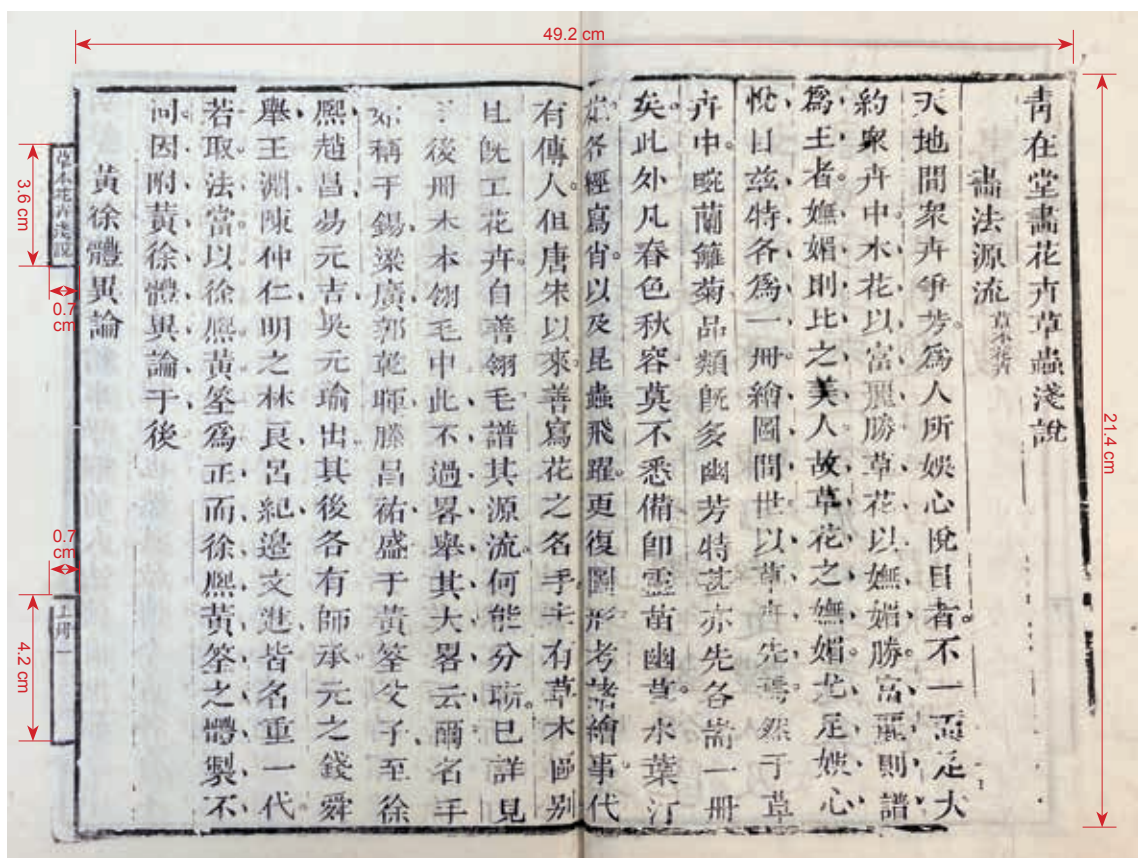 49.2 cm
21.4 cm
3.6 cm
0.7 cm
0.7 cm
4.2 cm
青在堂畫花卉草蟲淺說
畫法源流 草本花卉
天地間衆卉爭芳。爲人所娛心悅目者。不一而足大
約衆卉中。木花以富麗勝、草花以嫵媚勝。富麗則譜
爲王者。嫵媚則比之美人故草花之嫵媚。尤足娛心
悅目兹特各爲一冊。繪圖問世以草卉先焉。然于草
卉中。畹蘭籬菊品類旣多幽芳特甚亦先各耑一冊
矣。此外凡春色秋容。莫不悉備卽靈苗幽草。水葉汀
花。各經寫肖。以及昆蟲飛躍。更復圖形考諸繪事代
有傳人。但唐宋以來。善寫花之名手。未有草木區別
且旣工花卉。自善翎毛、譜其源流。何能分晰。已詳見
後冊木本翎毛中、此不過畧舉、其大畧云爾名手
稱于錫、梁廣、郭乾暉、滕昌祐、盛于黃筌父子、至徐
熙、趙昌、易元吉、吳元瑜出、其後各有師承。元之錢舜
舉、王淵、陳仲仁、明之林良、呂紀、邊文進、皆名重一代、
若取法當以徐熙黃筌爲正而、徐熙、黃筌之體製不
同因附黃徐體異論于後
黃徐體異論
草本花卉淺說
上冊一